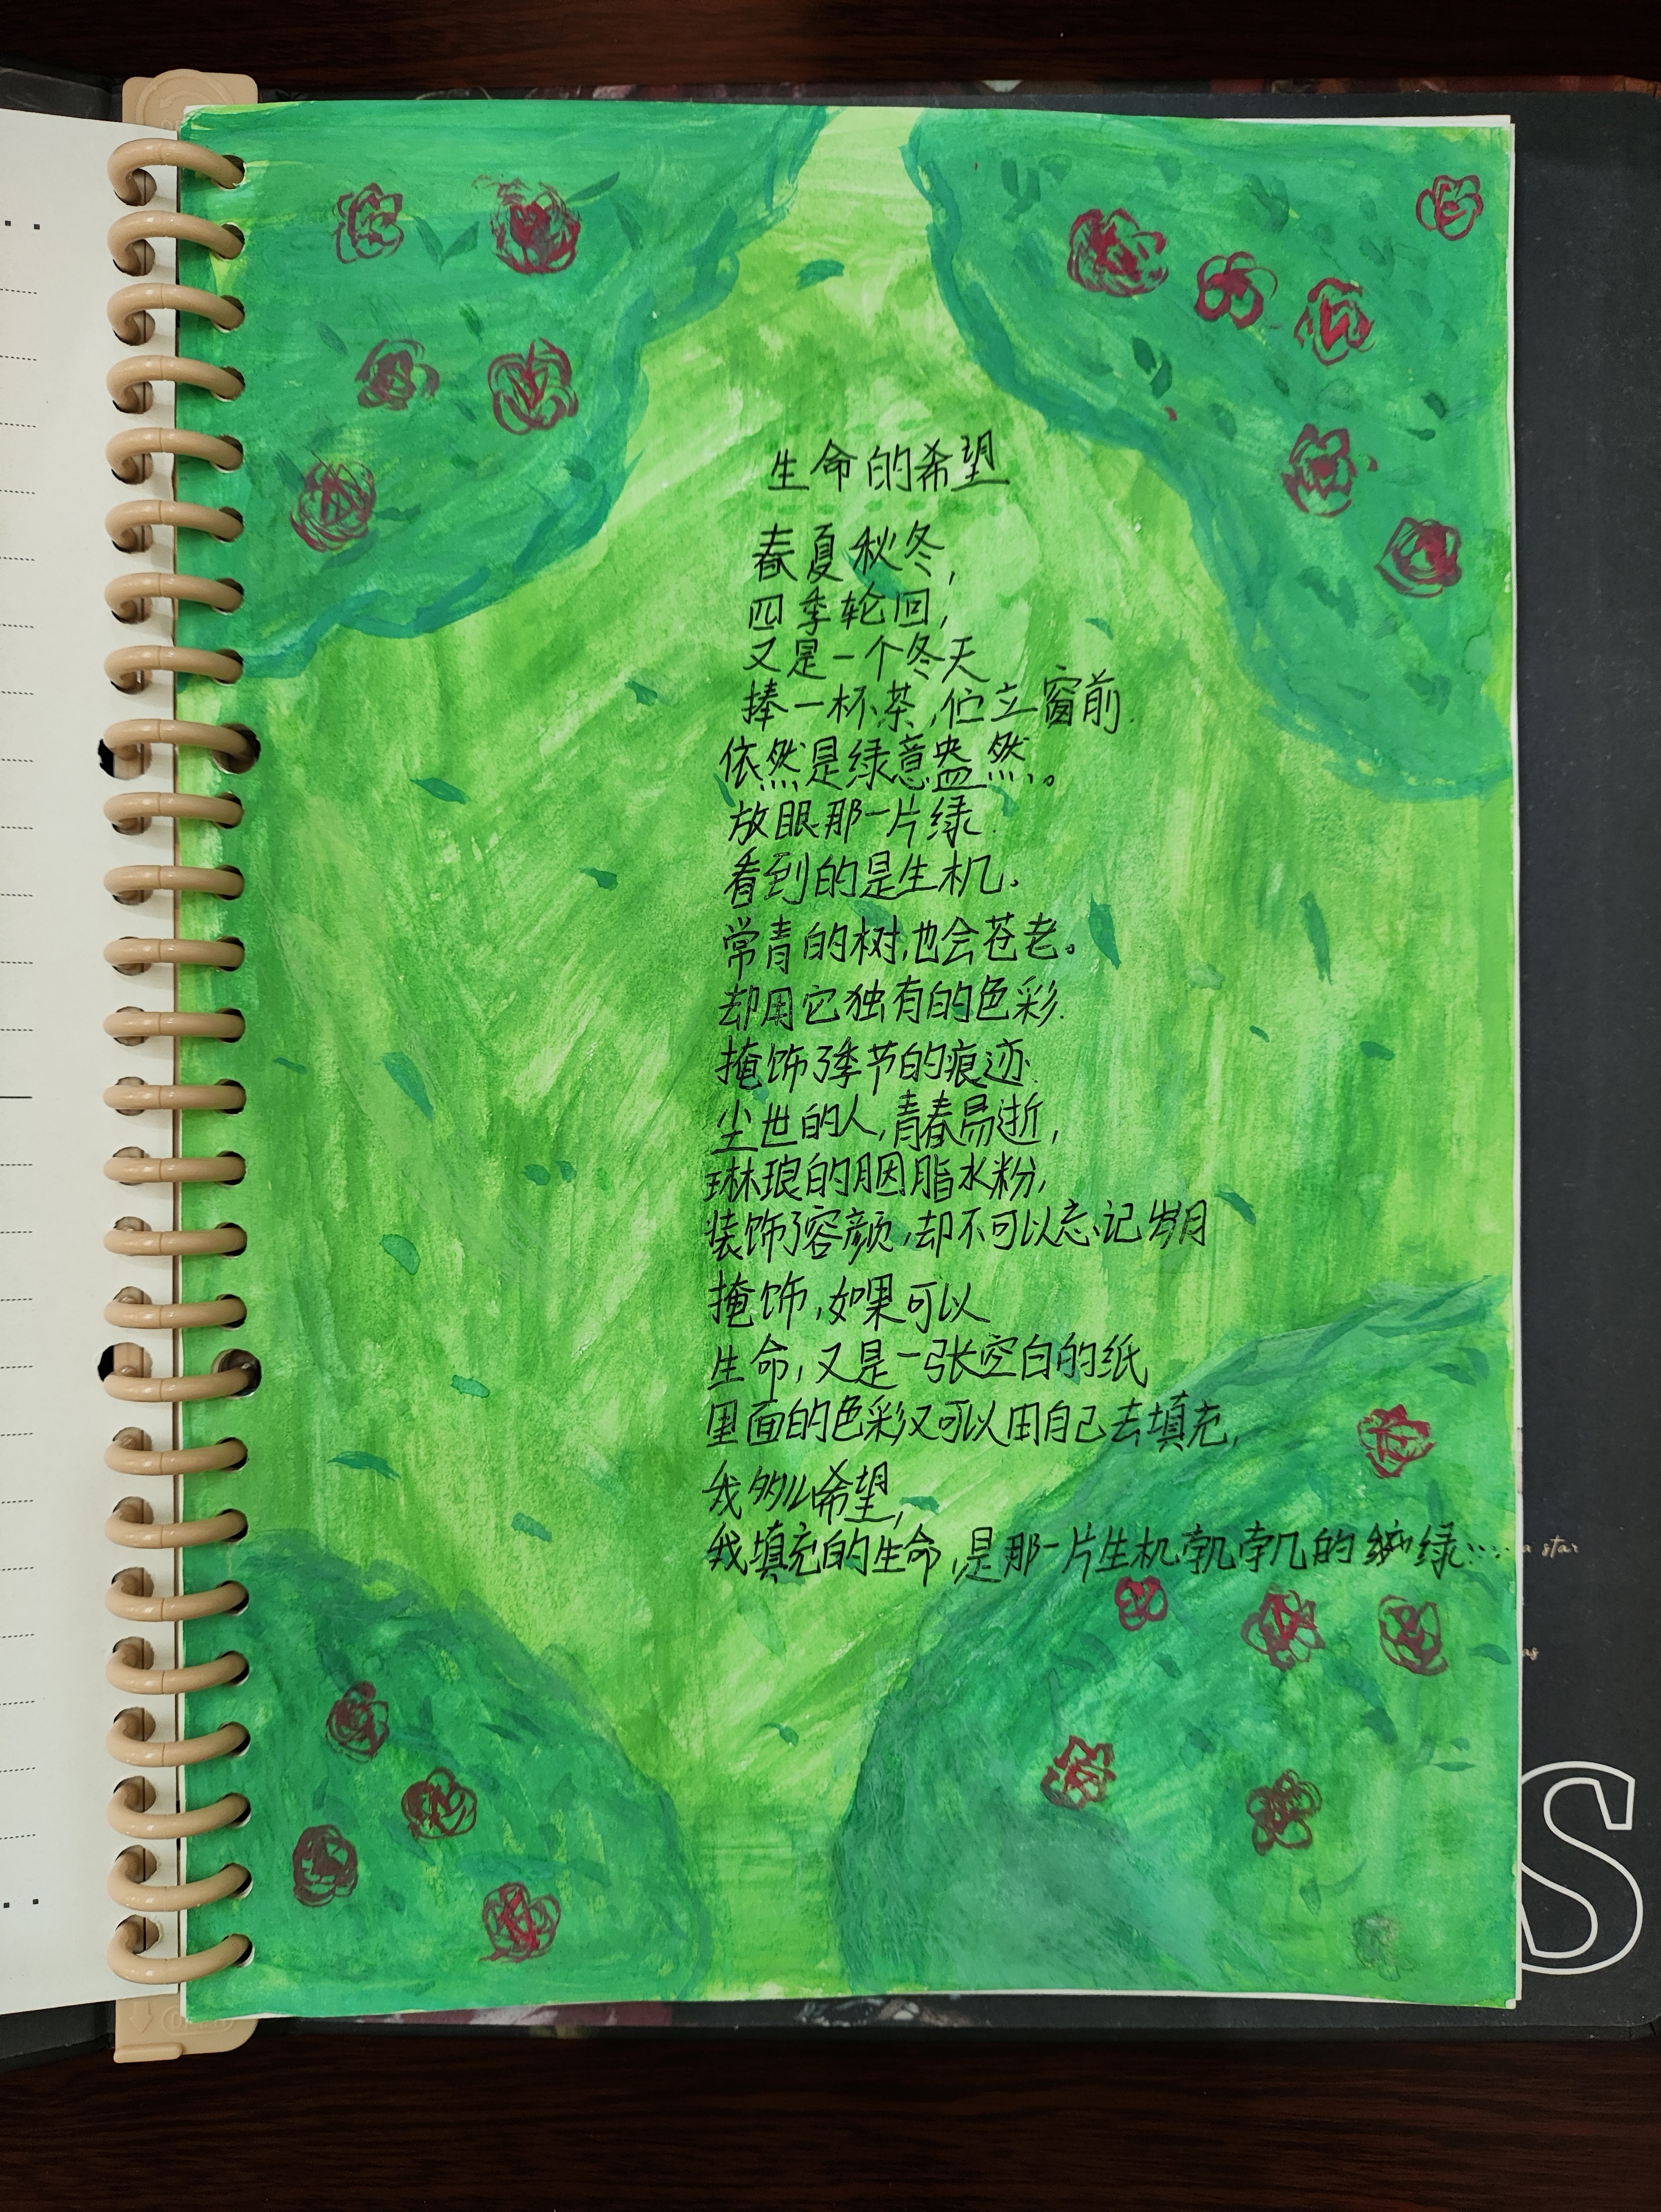 生命的希望
春夏秋冬,
四季轮回,
又是一个冬天
捧一杯茶,伫立窗前.
依然是绿意盎然,。
放眼那一片绿.
看到的是生机。
常青的树,也会苍老。
却用它独有的色彩.
掩饰了季节的痕迹.
尘世的人,青春易逝,
琳琅的胭脂水粉,
装饰了容颜,却不可以忘记岁月
掩饰,如果可以
生命,又是一张空白的纸
里面的色彩又可以用自己去填充,
我多么希望,
我填充的生命,是那一片生机勃勃的绿……
a star
as
S